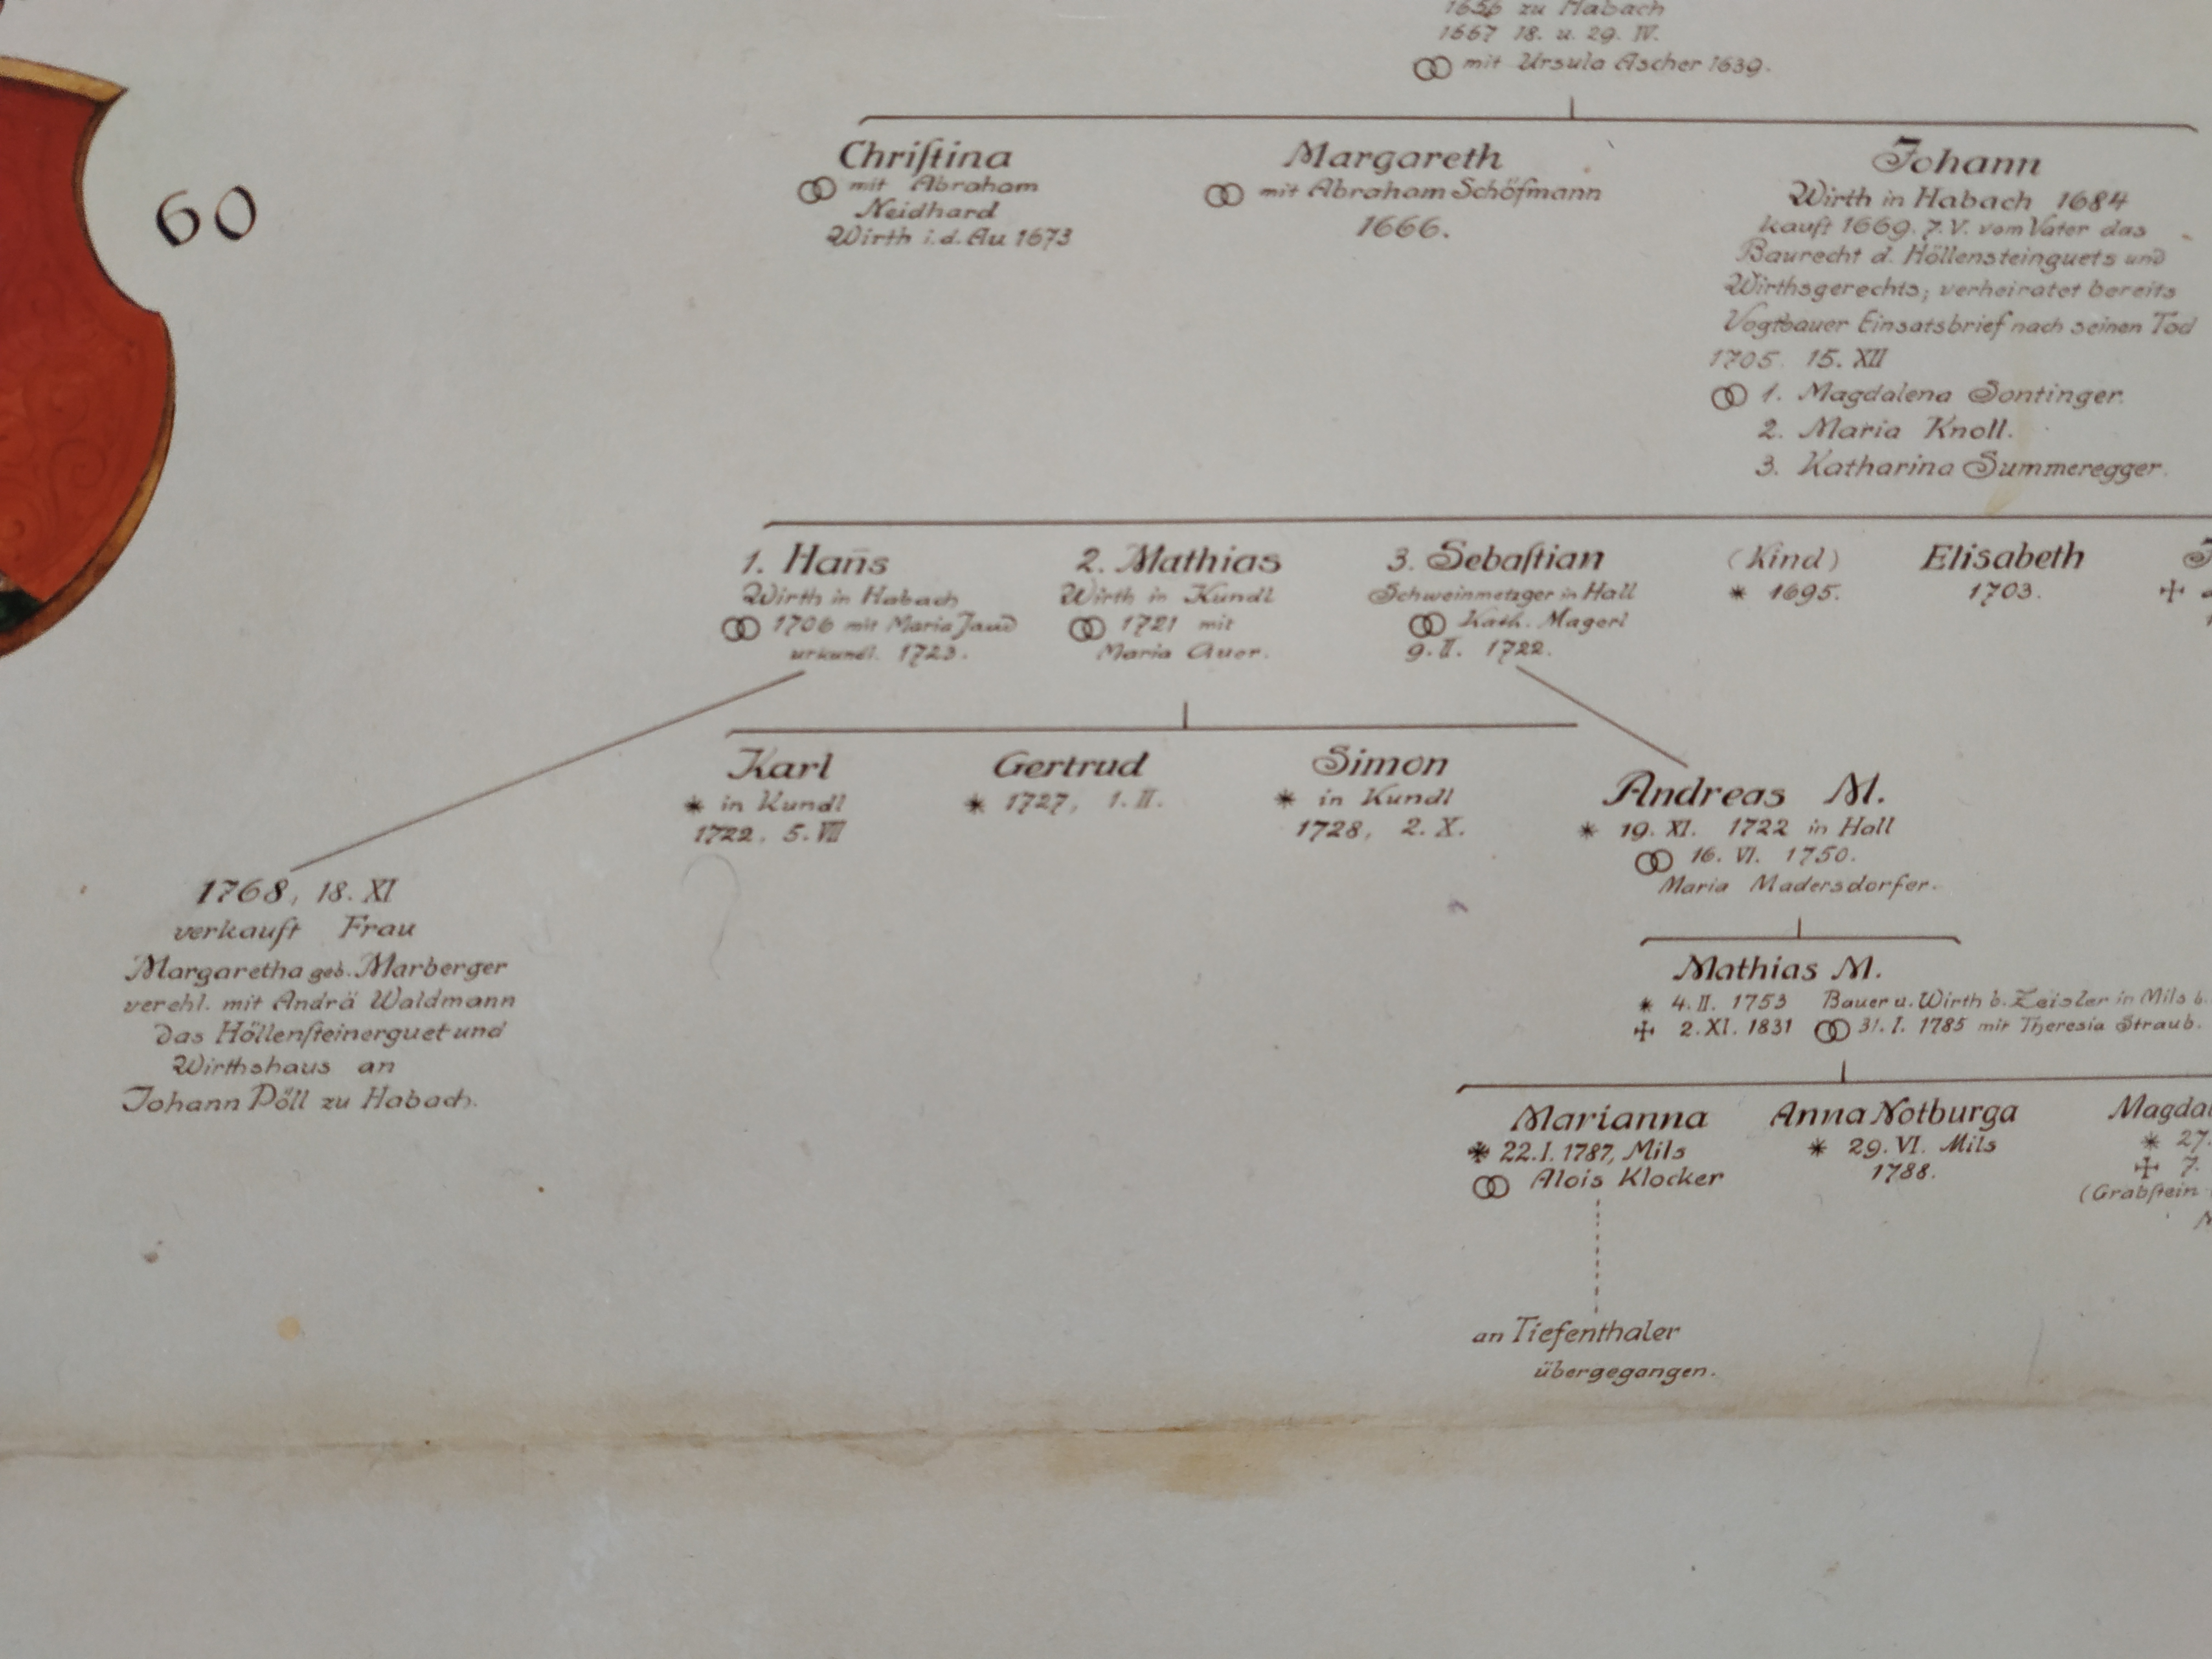 1656 zu Habach
1667 18. u. 29. IV.
mit Ursula Ascher 1639.
60
Chriſtina
mit Abraham
Neidhard
Wirth i. d. Au 1673
Margareth
mit Abraham Schöfmann
1666.
Johann
Wirth in Habach 1684
kauft 1669. 7. V. vom Vater das
Baurecht d. Höllensteinguets und
Wirthsgerechts; verheiratet bereits
Vogtbauer Einsatsbrief nach seinen Tod
1705. 15. XII
1. Magdalena Sontinger.
2. Maria Knoll.
3. Katharina Summeregger.
1. Han̄s
Wirth in Habach
1706 mit Maria Jaud
urkundl. 1723.
2. Mathias
Wirth in Kundl
1721 mit
Maria Auer.
3. Sebaſtian
Schweinmetzger in Hall
Kath. Magerl
9. II. 1722.
(Kind)
* 1695.
Elisabeth
1703.
Karl
* in Kundl
1722. 5. VII
Gertrud
* 1727, 1. II.
Simon
* in Kundl
1728, 2. X.
Andreas M.
* 19. XI. 1722 in Hall
16. VI. 1750.
Maria Madersdorfer.
1768, 18. XI
verkauft Frau
Margaretha geb. Marberger
verehl. mit Andrä Waldmann
das Höllenſteinerguet und
Wirthshaus an
Johann Pöll zu Habach.
Mathias M.
* 4. II. 1753 Bauer u. Wirth b. Zeisler in Mils b.
✠ 2. XI. 1831 31. I. 1785 mit Theresia Straub.
Marianna
* 22. I. 1787, Mils
Alois Klocker
Anna Notburga
* 29. VI. Mils
1788.
Magdal
* 27.
✠ 7.
(Grabſtein
an Tiefenthaler
übergegangen.